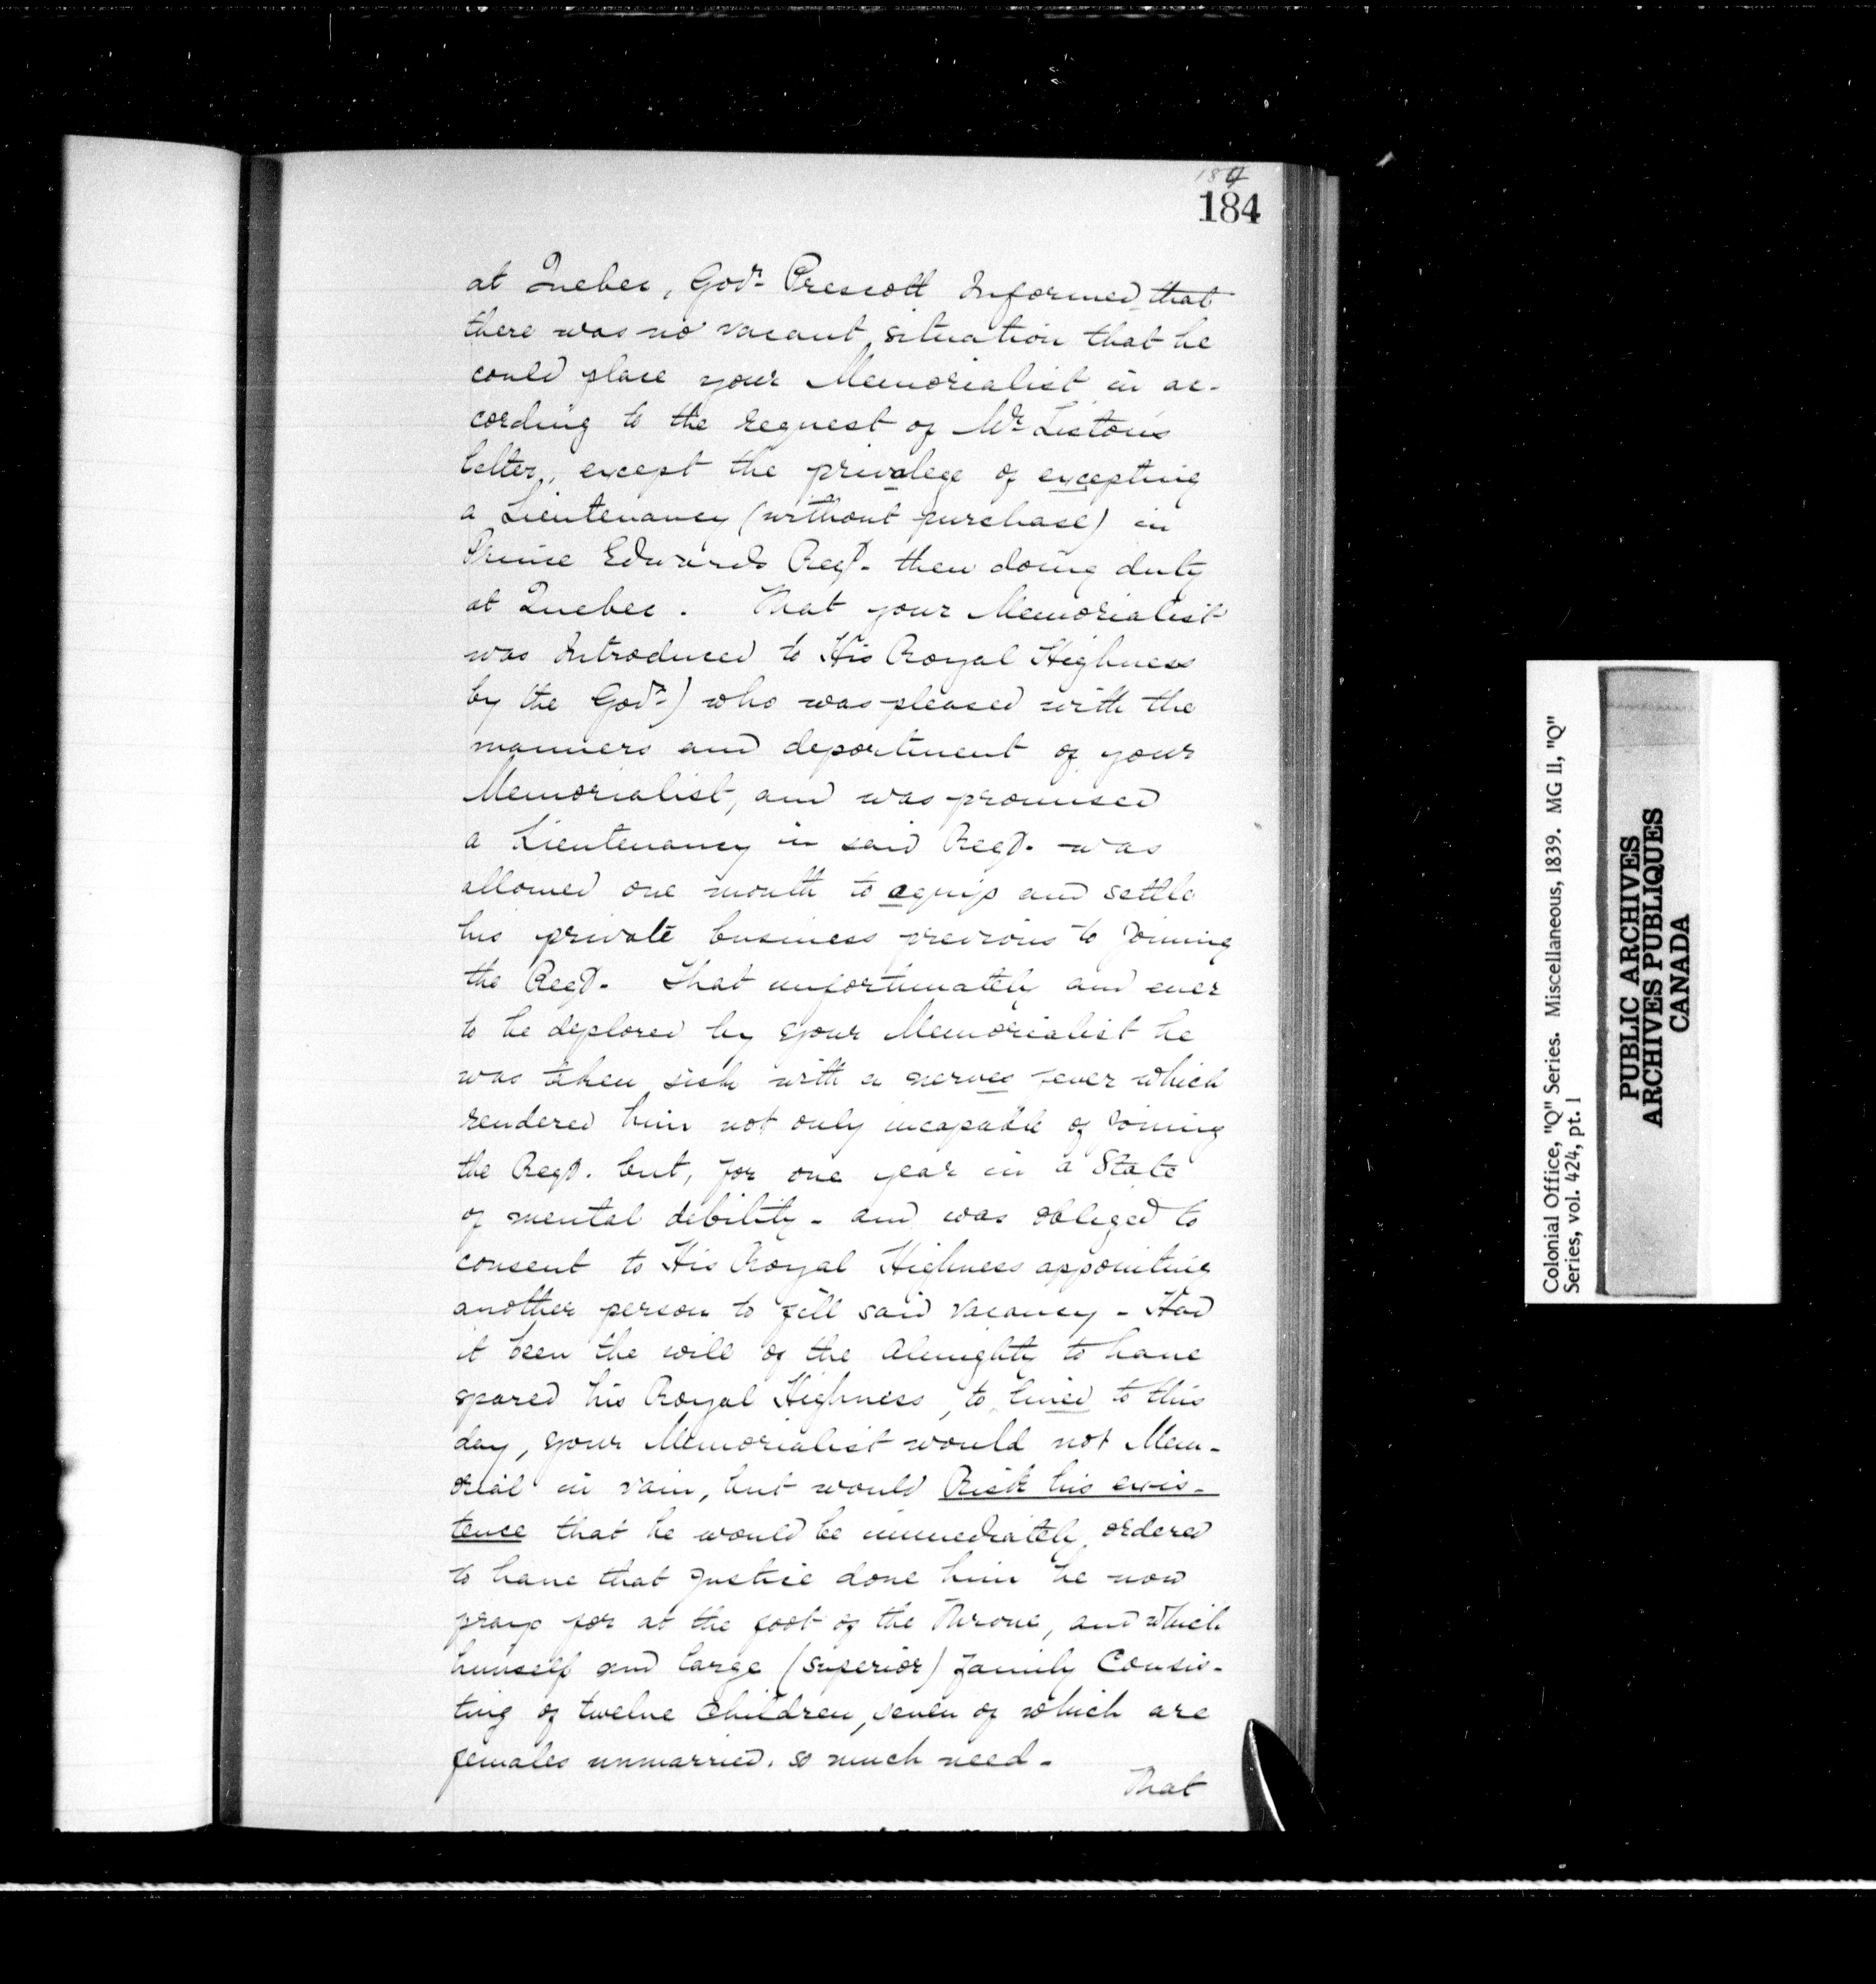 184
184
at Quebec, Govr. Prescott Informed that
there was no vacant situation that he
could place your Memorialist in ac-
cording to the request of Mr. Liston's
letter, except the privalege of excepting
a Lieutenancy (without purchase) in
Prince Edwards Regt. then doing duty
at Quebec. That your Memorialist
was Introduced to His Royal Highness
by the Govr.) who was pleased with the
manners and deportment of your
Memorialist, and was promised
a Lieutenancy in said Regt. was
allowed one month to aquip and settle
his private business previous to Joining
the Regt. That unfortunately and ever
to be deplored by your Memorialist he
was taken sick with a nerves fever which
rendered him not only incapable of Joining
the Regt. but, for one year in a State
of mental debility - and was obliged to
consent to His Royal Highness appointing
another person to fill said vacancy - Had
it been the will of the Almighty to have
spared his Royal Highness, to lived to this
day, your Memorialist would not Mem-
orial in vain, but would Risk his exis-
tence that he would be immediately ordered
to have that Justice done him he now
prays for at the foot of the Throne, and which
himself and large (superior) family Consis-
ting of twelve Children, seven of which are
females unmarried, so much need -
That
Colonial Office, "Q" Series. Miscellaneous, 1839. MG 11, "Q"
Series, vol. 424, pt. 1
PUBLIC ARCHIVES
ARCHIVES PUBLIQUES
CANADA